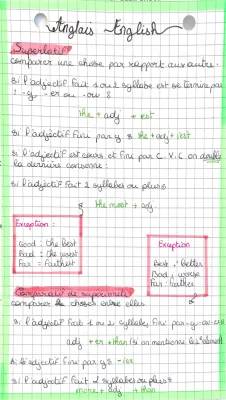 Anglais English
Superlatif
comparer une chose par rapport aux autres.
si l'adjectif fait 1 ou 2 syllabe est se termine par
: -y - er ou - ow :
the + adj + est
si l'adjectif fini par y : the + adj + iest
si l'adjectif est cours et fini par C.V.C on double
la dernière consonne
si l'adjectif fait 2 syllabes ou plus
the most + adj
Exeption :
Good : the best
Bad : the worst
Far : farthest
Exeption
Best : better
Bad : worse
Far : farther
Comparatif de supériorité
comparer choses entre elles
si l'adjectif fait 1 ou 2 syllabes fini par -y-
adj + er + than
si l'adjectif fini par y : -ier
si l'adjectif fait 2 syllabes ou plus
more + adj + than